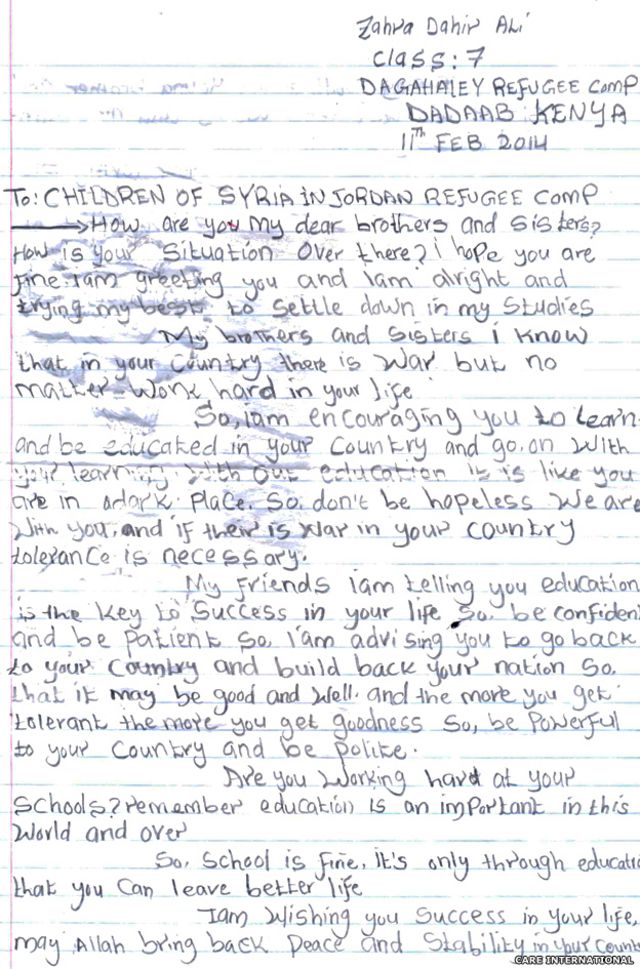 Zahra Dahir Ali
Class: 7
DAGAHALEY REFUGEE Comp
DADAAB KENYA
11th FEB 2014
To: CHILDREN OF SYRIA IN JORDAN REFUGEE Comp
How are you my dear brothers and sisters?
How is your situation over there? i hope you are
fine. iam greeting you and iam alright and
trying my best to settle down in my studies
My brothers and sisters i know
that in your country there is war but no
matter work hard in your life
So, iam encouraging you to learn
and be educated in your country and go, on with
your learning. with out education it is like you
are in adark place. So, don't be hopeless we are
with you, and if their is war in your country
tolerance is necessary.
My friends iam telling you education
is the key to success in your life So, be confiden
and be patient so, i'am advising you to go back
to your country and build back your nation So.
that it may be good and well. and the more you get
tolerant the more you get goodness So, be powerful
to your country and be polite.
Are you working hard at your
schools? remember education is an important in this
world and over
So, school is fine, it's only through educatio
that you can leave better life
Iam wishing you success in your life,
may Allah bring back peace and stability in your count
CARE INTERNATIONAL